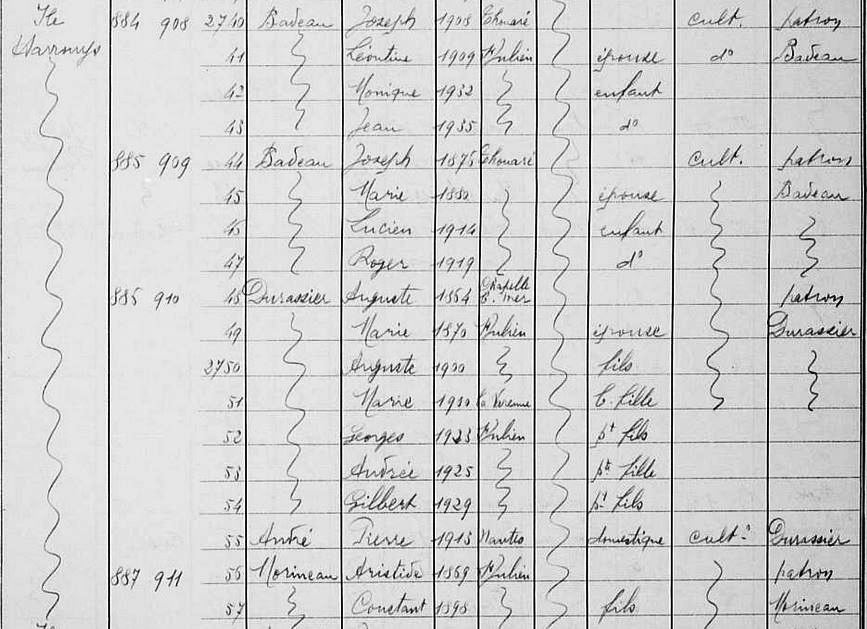 Ile 884 908 2740 Badeau Joseph 1908 Thouaré cult. patron
Harrouys 41 Léontine 1909 St Julien épouse do Badeau
42 Monique 1932 enfant
43 Jean 1935 do
885 909 44 Badeau Joseph 1875 Thouaré cult. patron
45 Marie 1880 épouse Badeau
46 Lucien 1914 enfant
47 Roger 1919 do
886 910 48 Durassier Auguste 1864 Chapelle B. Mer patron
49 Marie 1870 St Julien épouse Durassier
2750 Auguste 1900 fils
51 Marie 1900 la Varenne b. fille
52 Georges 1923 St Julien pt fils
53 Andrée 1925 pte fille
54 Gilbert 1929 pt fils
55 André Pierre 1913 Nantes domestique cult. Durassier
887 911 56 Morineau Aristide 1869 St Julien patron
57 Constant 1898 fils Morineau